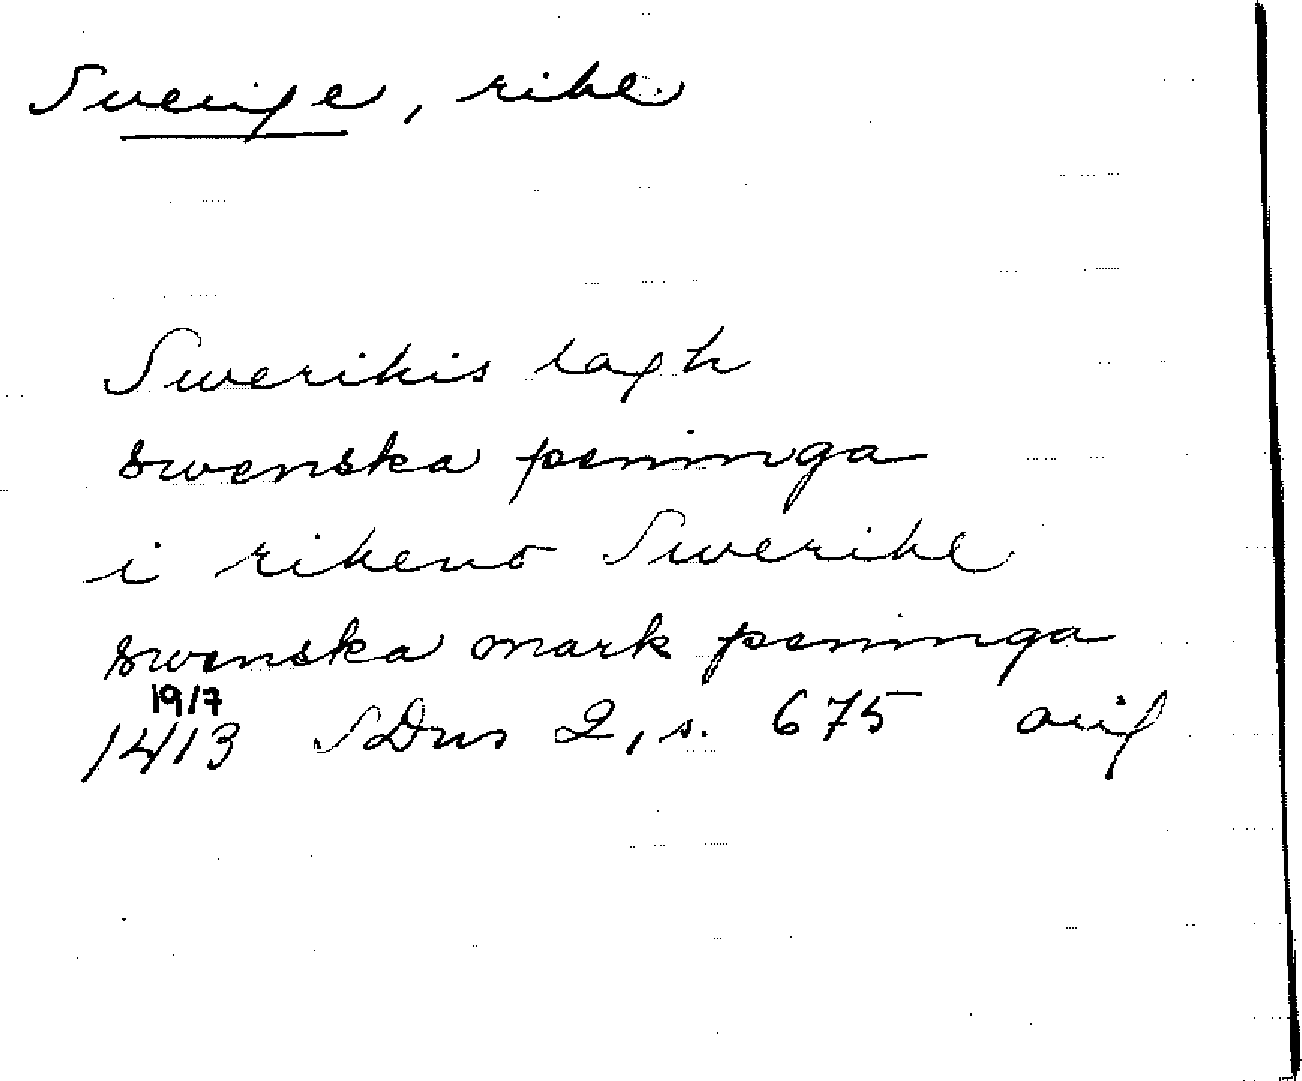 Sverige, rike
Swerikis lagh
swenska peninga
i rikeno Swerike
swenska mark peninga
19/7
1413 SDns 2, s. 675 orig